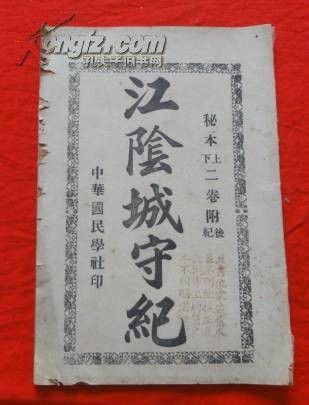 kongfz.com
孔夫子旧书网
秘本上下二卷附後紀
江陰城守紀
中華國民學社印